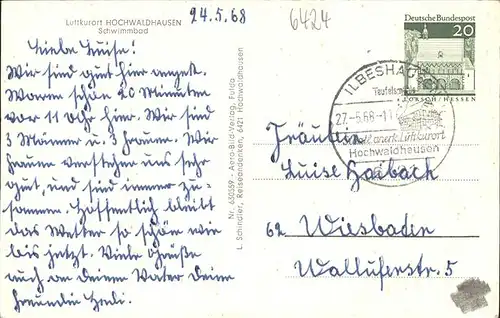 Luftkurort HOCHWALDHAUSEN
Schwimmbad
24.5.68
6424
Liebe Luise!
Wir sind gut hier angek.
Waren schon 20 Minuten
vor 11 Uhr hier. Wir sind
3 Männer u. 3 Frauen. Wir
Frauen verstehen uns sehr
gut, und sind immer zu-
sammen. Hoffentlich bleibt
das Wetter so schön wie
bis jetzt. Viele Grüße
auch an Deinen Vater Deine
Freundin Hedi.
Nr. 650359 - Aero-Bild-Verlag, Fulda
L. Schindler, Reiseandenken, 6421 Hochwaldhausen
Deutsche Bundespost
20
LORSCH/HESSEN
ILBESHAUSEN
Teufelsmühle
27.-5.68-11
Luftkurort
Hochwaldhausen
Fräulein
Luise Haibach
62 Wiesbaden
Walluferstr. 5